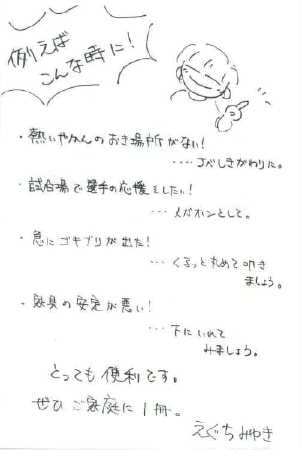 例えば
こんな時に!
・熱いやかんのおき場所がない!
‥‥なべしきがわりに。
・試合場で選手の応援をしたい!
‥‥メガホンとして。
・急にゴキブリが出た!
‥‥くるっと丸めて叩き
ましょう。
・家具の安定が悪い!
‥‥下にいれて
みましょう。
とっても便利です。
ぜひご家庭に1冊。
えぐちみゆき